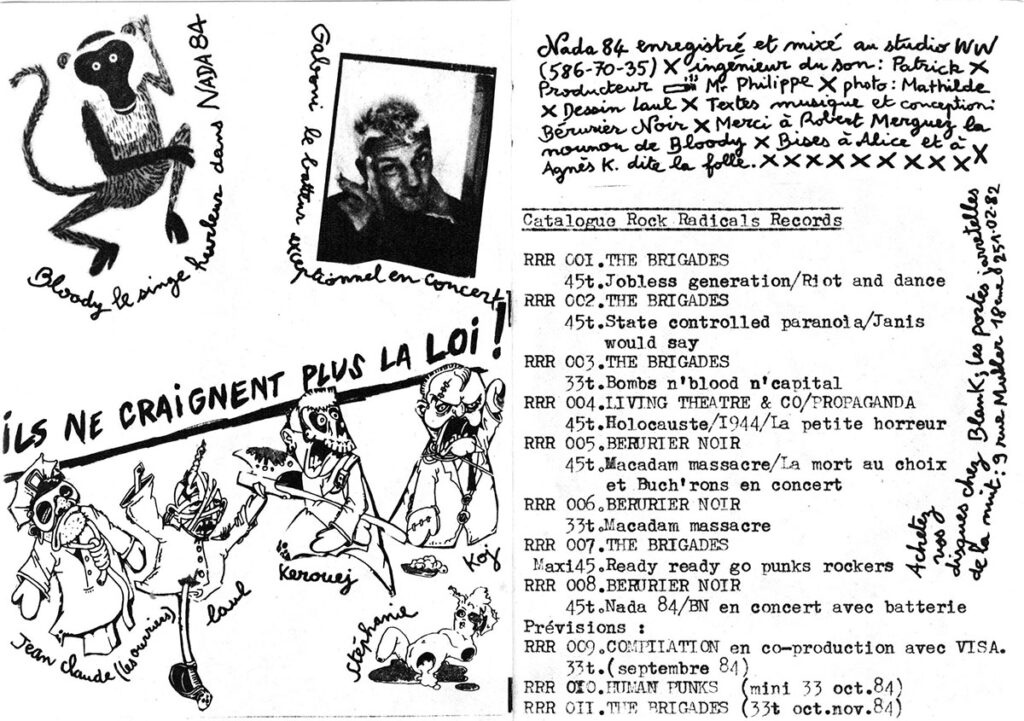 Bloody le singe hurleur dans NADA 84
Galooni le batteur exceptionnel en concert
ILS NE CRAIGNENT PLUS LA LOI !
Jean Claude (les ouvriers)
laul
Kerouej
Koj
Stéphanie
Nada 84 enregistré et mixé au studio WW
(586-70-35) X ingénieur du son : Patrick X
Producteur Mr Philippe X photo : Mathilde
X Dessin Laul X Textes musique et conception :
Bérurier Noir X Merci à Robert Merguez la
nounou de Bloody X Bises à Alice et à
Agnès K. dite la folle. X X X X X X X X X X
Catalogue Rock Radicals Records
RRR 001.THE BRIGADES
45t.Jobless generation/Riot and dance
RRR 002.THE BRIGADES
45t.State controlled paranoia/Janis
would say
RRR 003.THE BRIGADES
33t.Bombs n'blood n'capital
RRR 004.LIVING THEATRE & CO/PROPAGANDA
45t.Holocauste/1944/La petite horreur
RRR 005.BERURIER NOIR
45t.Macadam massacre/La mort au choix
et Buch'rons en concert
RRR 006.BERURIER NOIR
33t.Macadam massacre
RRR 007.THE BRIGADES
Maxi45.Ready ready go punks rockers
RRR 008.BERURIER NOIR
45t.Nada 84/BN en concert avec batterie
Prévisions :
RRR 009.COMPILATION en co-production avec VISA.
33t.(septembre 84)
RRR 010.HUMAN PUNKS (mini 33 oct.84)
RRR 011.THE BRIGADES (33t oct.nov.84)
Achetez
vos
disques chez Blank, les portes jarretelles
de la nuit : 9 rue Muller 18eme 251.02.82